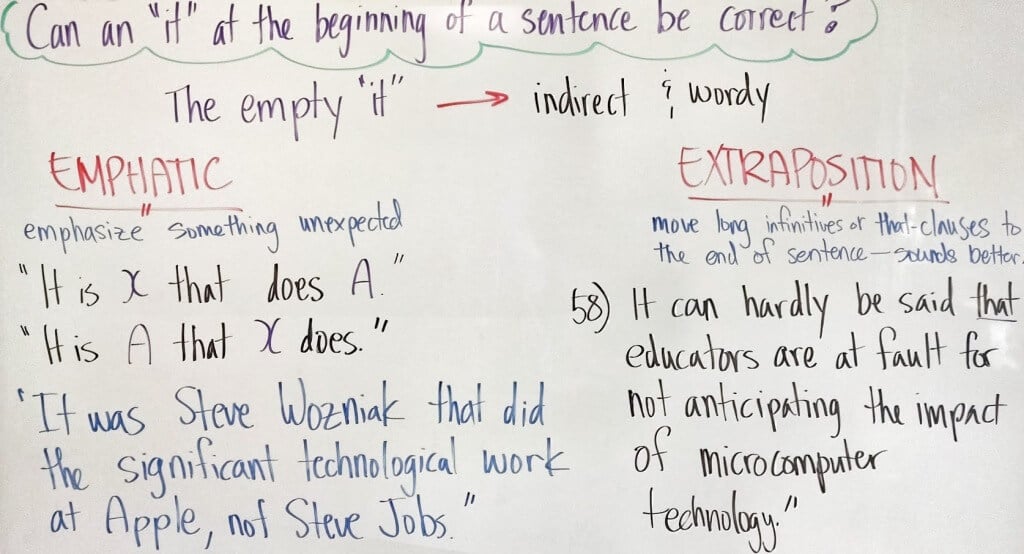 Can an "it" at the beginning of a sentence be correct?
The empty "it" → indirect & wordy
EMPHATIC
emphasize something unexpected
"It is X that does A."
"It is A that X does."
"It was Steve Wozniak that did
the significant technological work
at Apple, not Steve Jobs."
EXTRAPOSITION
move long infinitives or that-clauses to
the end of sentence — sounds better.
58) It can hardly be said that
educators are at fault for
not anticipating the impact
of microcomputer
technology."